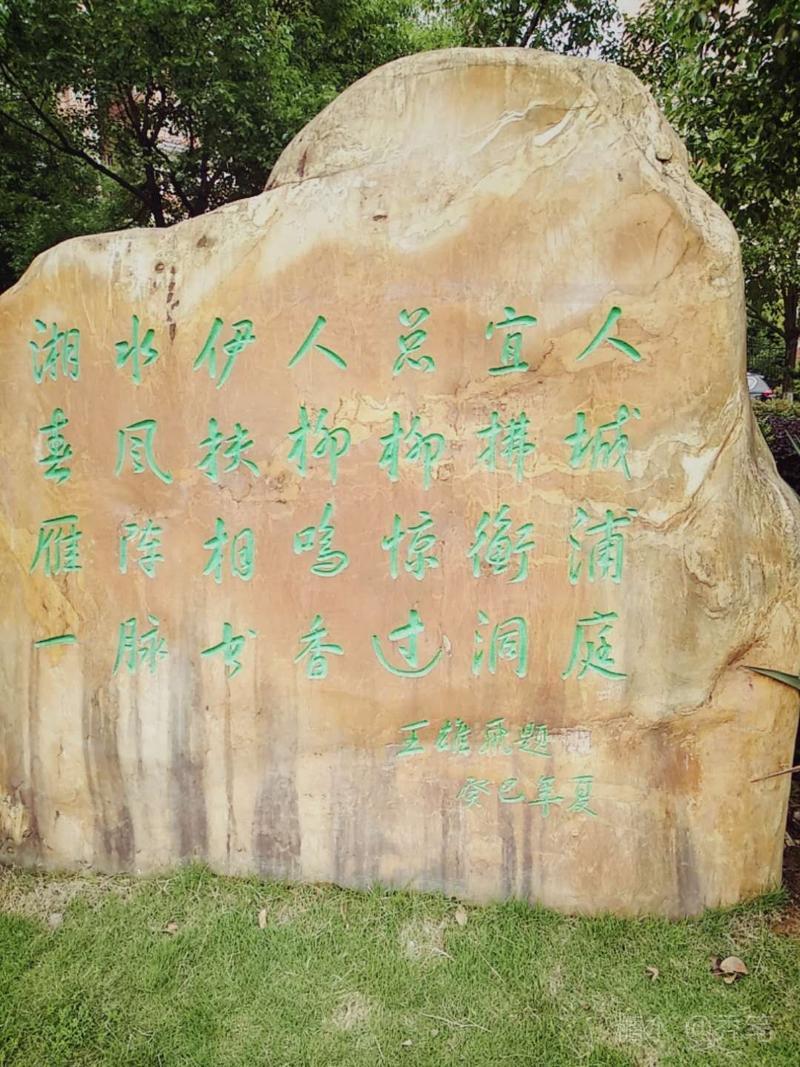 湘水伊人总宜人
春风扶柳柳拂城
雁阵相鸣惊衡浦
一脉书香过洞庭
王雄飛题
癸巳年夏